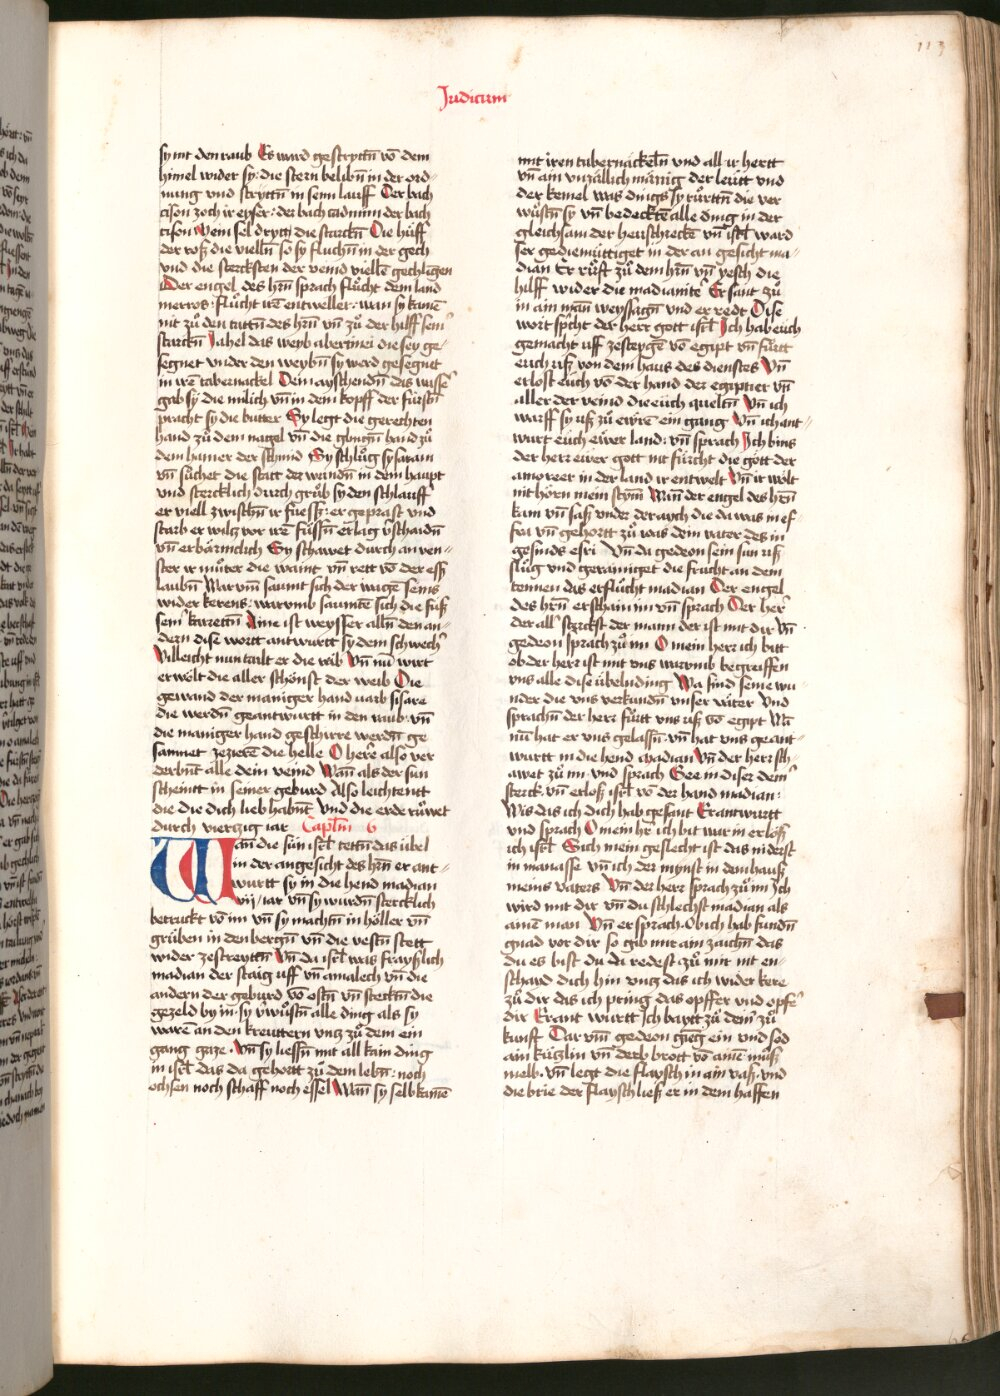 113
Judicum
sy mt den raub Es ward gestrytn̄ vō dem
himel wider sy: die stern belibn̄ in der ord-
nung vnd strytn̄ in seim lauff Der bach
cison zoch ir cyser: der bach cadmim der bach
cison Mein sel drytt die starckn̄ Die hüff
der roß die vielln̄ so sy fluchn̄ in der gech
vnd die stercksten der veind vielle gechligen
Der engel des hrn̄ sprach flůcht dem land
merros: flůcht irē entweller: wan sy kamē
nit zů den tattn̄ des hrn̄ vn̄ zů der hilff seinˀ
starckn̄ Jahel das weyb abermei die sey ge-
segnet vnder den weybn̄ sy werd gesegnet
in irē tabernackel Dem ayschendn̄ das wassˀ
gab sy die milich vn̄ in dem kopff der fürstn̄
pracht sy die butter Sy legt die gerechten
hand zů dem nagel vn̄ die glincgn̄ hand zů
dem hamer der schmid Sy schlůg sysaram
vn̄ sůchet die statt der wundn̄ in dem haupt
vnd stercklich durch grůb sy den schlauff
er viell zwischn̄ ir fuessn̄: er geprast vnd
starb er wilcz vor irē füssn̄ er lag vˀschaidn̄
vn̄ erbärmclich Sy schawet durch ain ven-
ster ir můter die waint vn̄ rett vō der ess
laubn̄ Warum̄ saumt sich der wagē seins
wider kerens: warumb saumtē sich die füß
seinˀ karettn̄ Aine ist weysser alln̄ den an-
dern dise wortt antwurtt sy dem schwechˀ
Villeicht nun tailt er die rāb Vn̄ nū wirt
erwölt die aller schönst der weib Die
gewand der maniger hand varb sisare
die werdn̄ geantwurtt in den raub: vn̄
die maniger hand geschirre werdn̄ ge
samnet zezierē die helle O herē also ver
derbnt alle dein veind Wan̄ als der sun
scheintt in seiner geburd Also leichtentt
die die dich lieb habnt Vnd die erde růwet
durch vierczig iar Caplm̄ 6
Wan̄ die sün isrl̄ tettn̄ das übel
in der angesicht des hrn̄ er ant-
wurtt sy in die hend madian
vij iar vn̄ sy wurdn̄ stercklich
betruckt vō im vn̄ sy machtn̄ in höller vn̄
grůben in den bergn̄ vn̄ die vestn̄ stett
wider zestreyttn̄ Vn̄ da isrl̄ was frayslich
madian der staig vff vn̄ amalech vn̄ die
andern der geburd vō ostn̄ vn̄ stecktn̄ die
gezeld by im: sy vˀwůstn̄ alle ding als sy
warē an den kreuttern vntz zů dem ein
gang gaze. Vn̄ sy liessn̄ mt all kain ding
in isrl̄ das da gehortt zů dem lebn̄: noch
ochsen noch schaff noch essel Wan̄ sy selb kamē
mit iren tabernäckeln̄ vnd all ir hertt
vn̄ ain vnzällich mänig der leütt vnd
der kemel was dings sy růrttn̄ die ver
wůstn̄ sy vn̄ bedecktē alle ding in der
gleichsam der heuschreckē vn̄ isrl̄ ward
ser gediemüttiget in der an gesicht ma-
dian Er růfft zů dem hrn̄ vn̄ yesch die
hilff wider die madianitē Er sant zů
in ain man weyssagn̄ vnd er redt Dise
wort spˀcht der herr gott isrl̄ Ich hab euch
gemacht uff zesteygē vō egipt vn̄ fürtt
euch uß von dem haus des dienstes Vn̄
erlost euch vō der hand der egiptier vn̄
aller der veind die euch queltn̄ Vn̄ ich
warff sy uß zů ewrē ein gang Vn̄ ich ant-
wurt euch ewer land: vn̄ sprach Ich bins
der herr ewer gott nit fürcht die gött der
amoreer in der land ir entwelt Vn̄ ir wölt
nit hörn mein stym̄ Wan̄ der engel des hrn̄
kam vn̄ saß vnder der aych die da was in ef-
fra vn̄ gehortt zů was dem vater des in
gesinds esri Vn̄ da gedeon sein sun uß
slůg vnd gerainiget die frucht an dem
tennen das er flücht madian Der engel
des hrn̄ erschain im vn̄ sprach Der herˀ
der allˀ sterckst der mann der ist mit dir Vn̄
gedeon sprach zů im O mein herr ich bitt
ob der herr ist mit vns warumb begreiffen
vns alle dise übel ding Wa sind seine wu-
nder die vns verkundn̄ vnser väter Vnd
sprachn̄ der herr fürtt vns uß vō egipt Vn̄
nū hat er vns gelassn̄: vn̄ hat vns geant-
wurtt in die hend madian Vn̄ der herr sch-
awet zů im: vnd sprach Gee in diser deinˀ
sterck: vn̄ erlöß isrl̄ vō der hand madian:
Wiß das ich dich hab gesant Er antwurtt
vnd sprach O mein hrˀ ich bit war in erlöß
ich isrl̄ Sich mein geslecht ist das niderst
in manasse vn̄ ich der mynst in dem hauß
meins vaters Vn̄ der herr sprach zů im Ich
wird mit dir vn̄ du schlechst madian als
ainē man Vn̄ er sprach: Ob ich hab fundn̄
gnad vor dir so gib mir ain zaichn̄ das
du es bist du da redest zů mir nit en-
schawd dich hin vntz das ich wider kere
zů dir das ich pring das opffer vnd opfˀe
dir Er ant wurtt Ich bayt zů deinˀ zů
kunfft Dar vm̄ gedeon gieng ein vnd sod
ain kützlin vn̄ derb brott vō ainē müß
melb. vn̄ legt die flaysch in ain vaß: vnd
die brie der flaysch ließ er in dem haffen